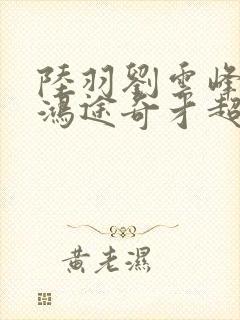 陸羽劉雲峰
鴻途奇才超
黃老濕